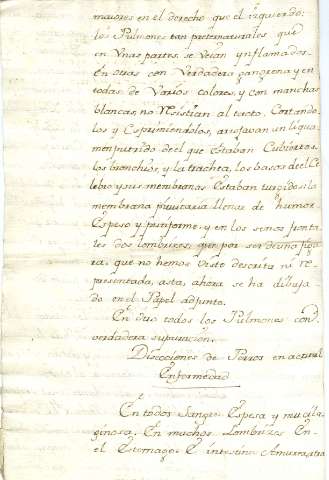 maiores en el derecho que el izquierdo:
los Pulmones tan preternaturales, que
en Unas partes, se veian ynflamados
En otras con Verdadera gangrena y en
todas de Varios colores, y con manchas
blancas, no Resistian al tacto. Cortando
los y Esprimiendolos, arrojavan un liqua
men putrido de el que estaban Cubiertos
los bronchios, y la trachea, los basos del Ce
lebro y sus membranas Estaban turgidos: la
membrana pituitaria llena de humor
Espeso y puriforme, y en los senos fronta
les dos lombrizes, que por ser de una figu
ra, que no hemos visto descrita ni re
presentada, asta ahora se ha dibuja
do en el Papel adjunto.
En dos todos los Pulmones con
verdadera supuracion.
Disecciones de Perros en actual
Enfermedad
En todos Sangre Espesa y mucila
ginosa. En muchos Lombrizes En
el Estomago E intestino